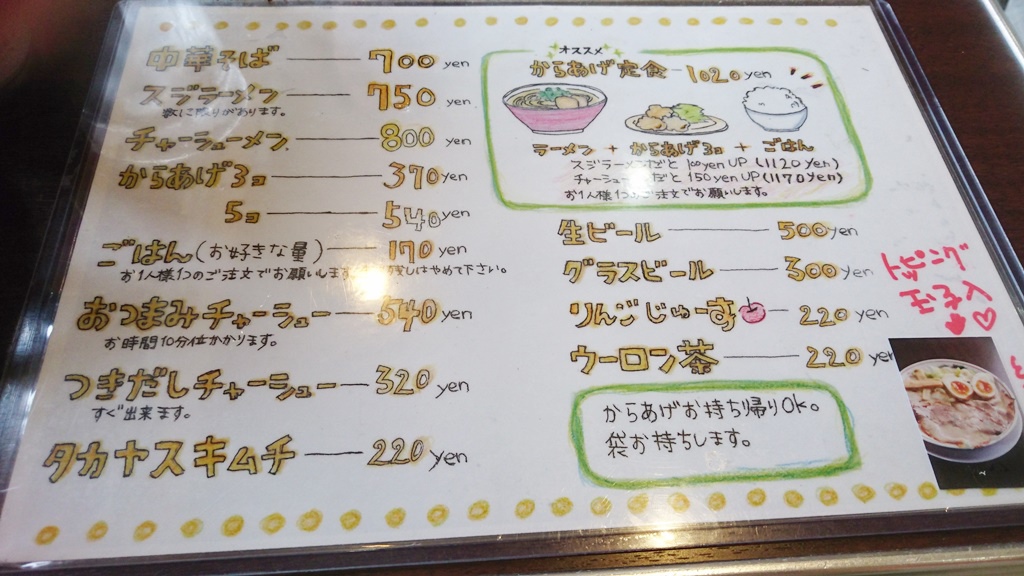 中華そば 700 yen
スジラーメン 750 yen
数に限りがあります。
チャーシューメン 800 yen
からあげ3コ 370 yen
5コ 540 yen
ごはん(お好きな量) 170 yen
お1人様1つのご注文でお願いします 残しはやめて下さい。
おつまみチャーシュー 540 yen
お時間10分位かかります。
つきだしチャーシュー 320 yen
すぐ出来ます。
タカヤスキムチ 220 yen
オススメ
からあげ定食 1020 yen
ラーメン + からあげ3コ + ごはん
スジラーメンだと 100yen UP (1120 yen)
チャーシュー だと 150yen UP (1170 yen)
お1人様1つのご注文でお願いします。
生ビール 500 yen
グラスビール 300 yen
りんごじゅーす 220 yen
ウーロン茶 220 yen
からあげお持ち帰りOK。
袋お持ちします。
トッピング
玉子入